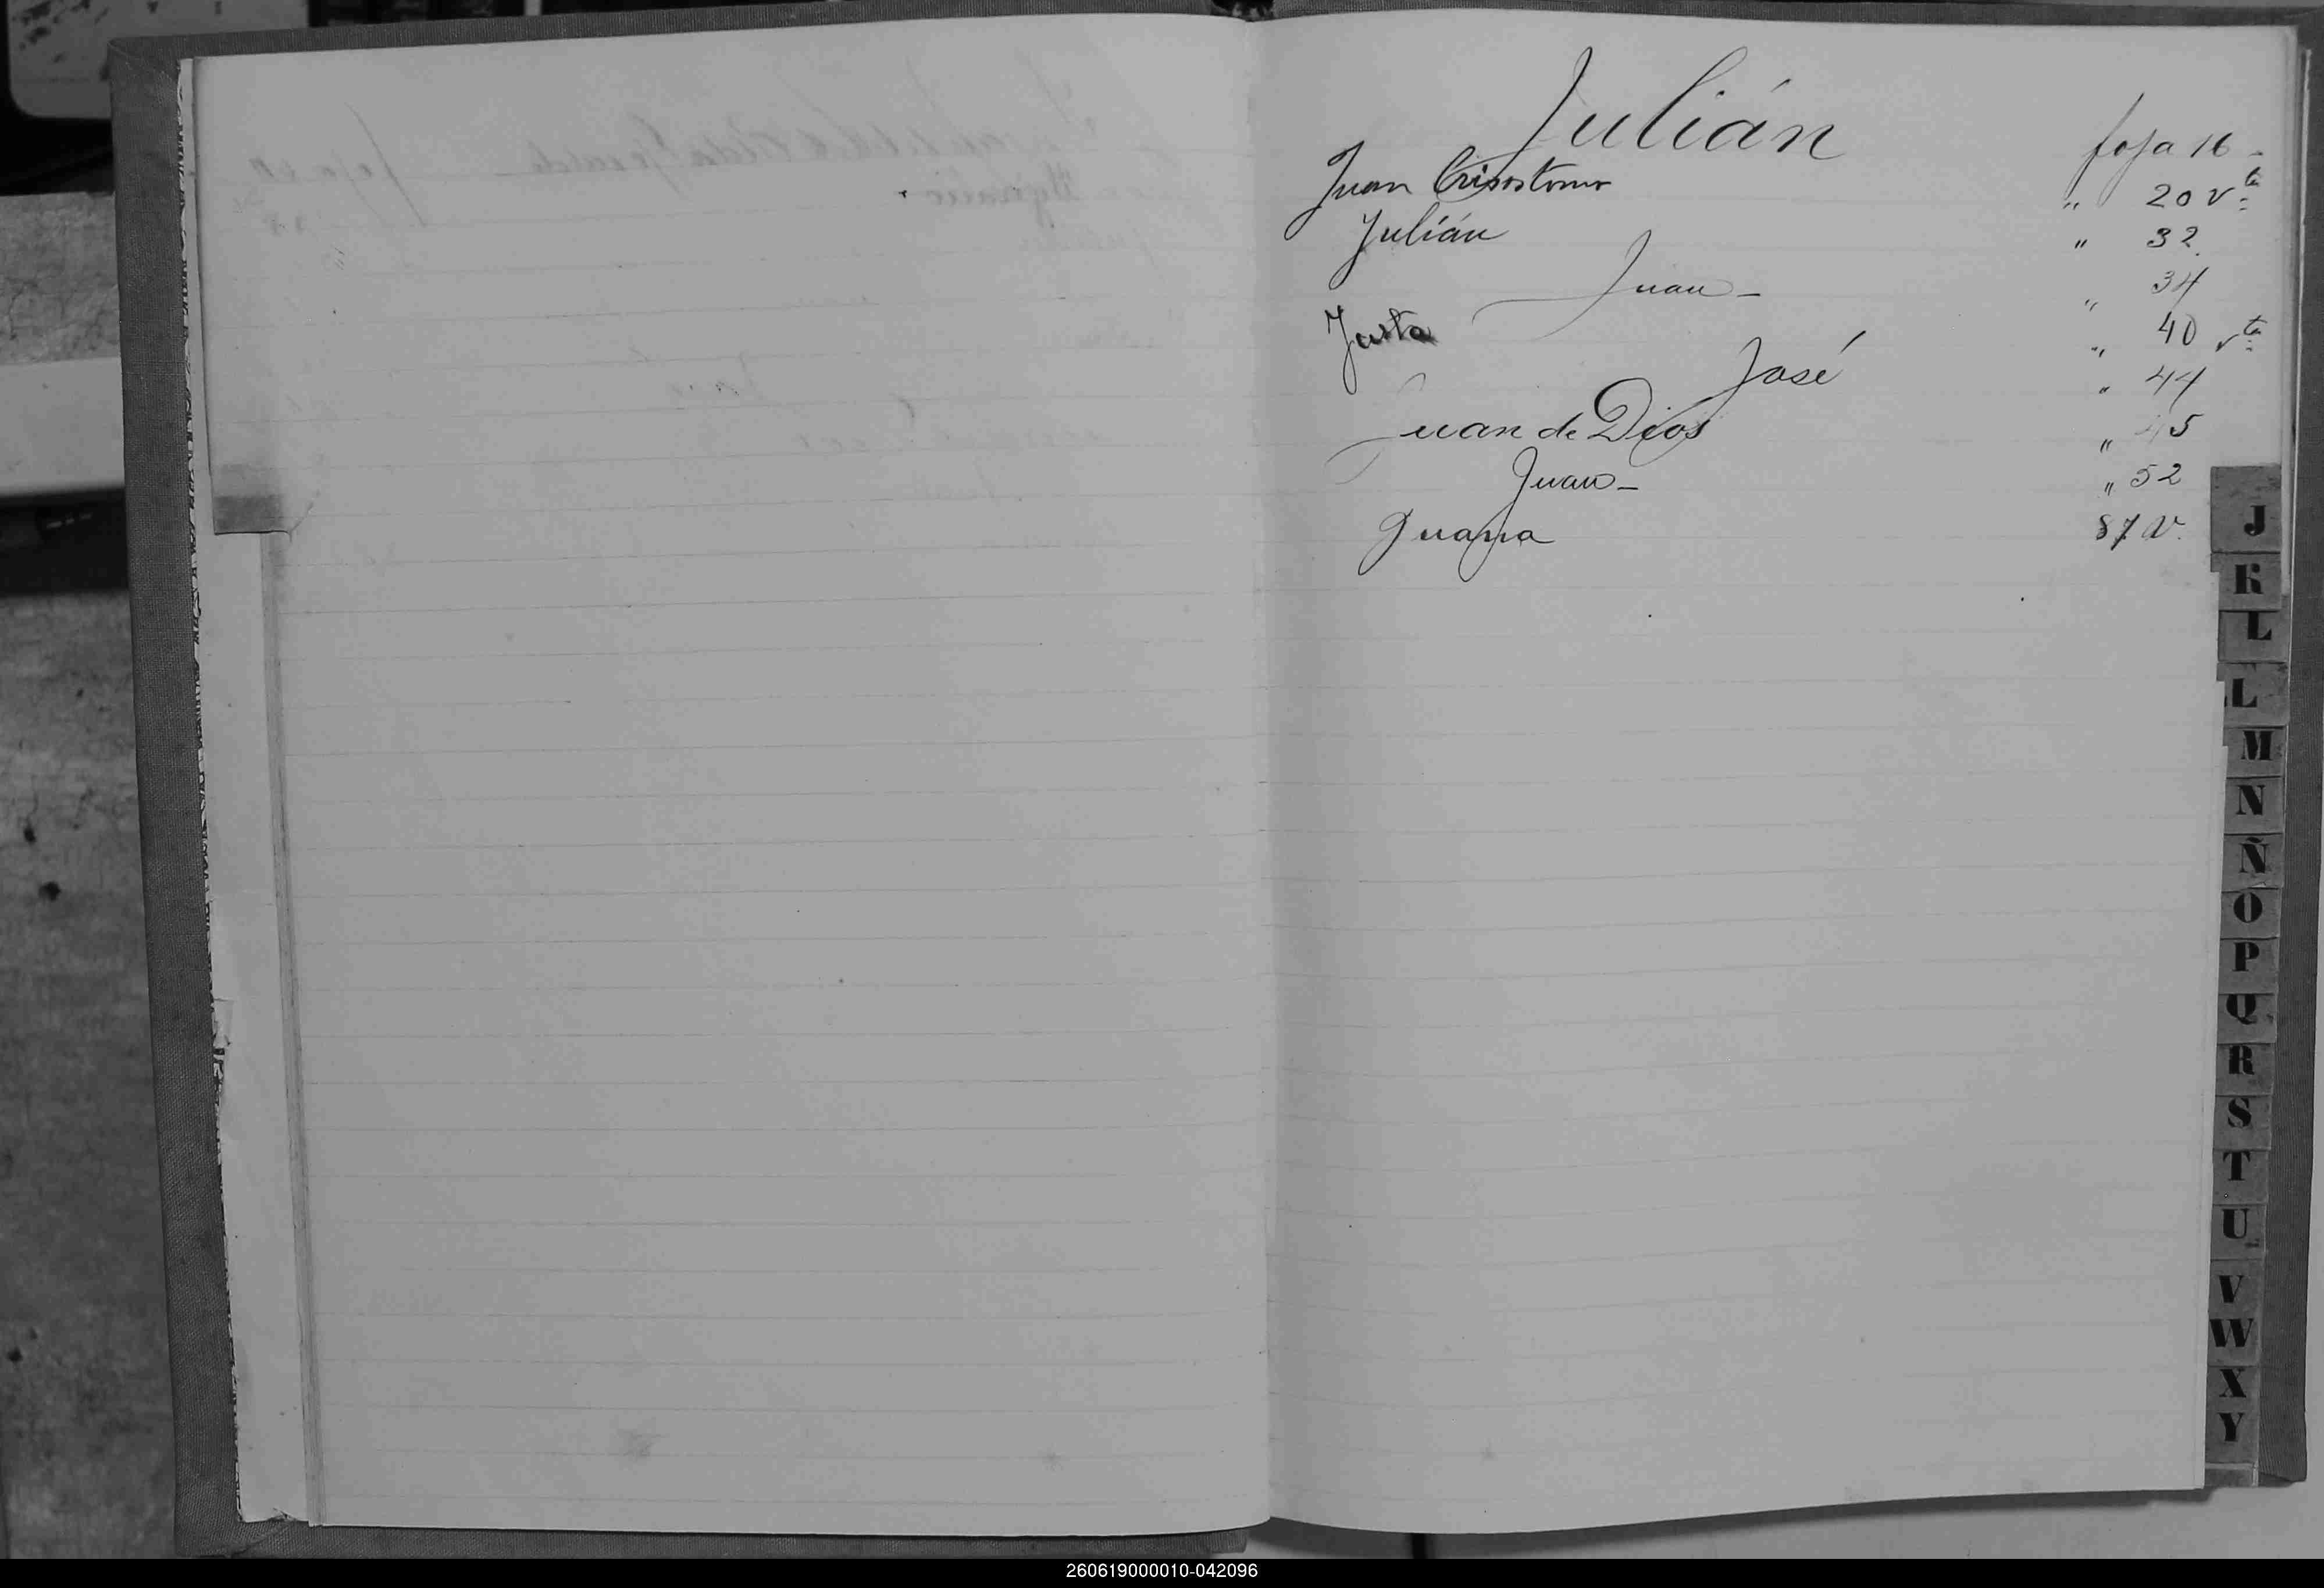 Julián foja 16 -
Juan Crisostomo " 20 vta
Julián " 32
Juan - " 34
Justa " 40 vta
José " 44
Juan de Dios " 45
Juan - " 52
Juana 87 v.
J
K
L
L
M
N
Ñ
O
P
Q
R
S
T
U
V
W
X
Y
260619000010-042096